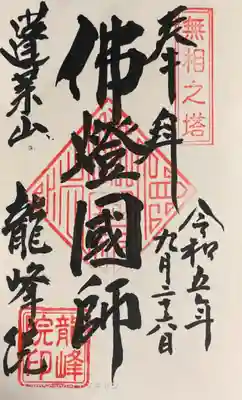 奉拜
無相之塔
令和五年
九月二十八日
佛燈國師
蓬莱山
龍峰院
龍峰
院印